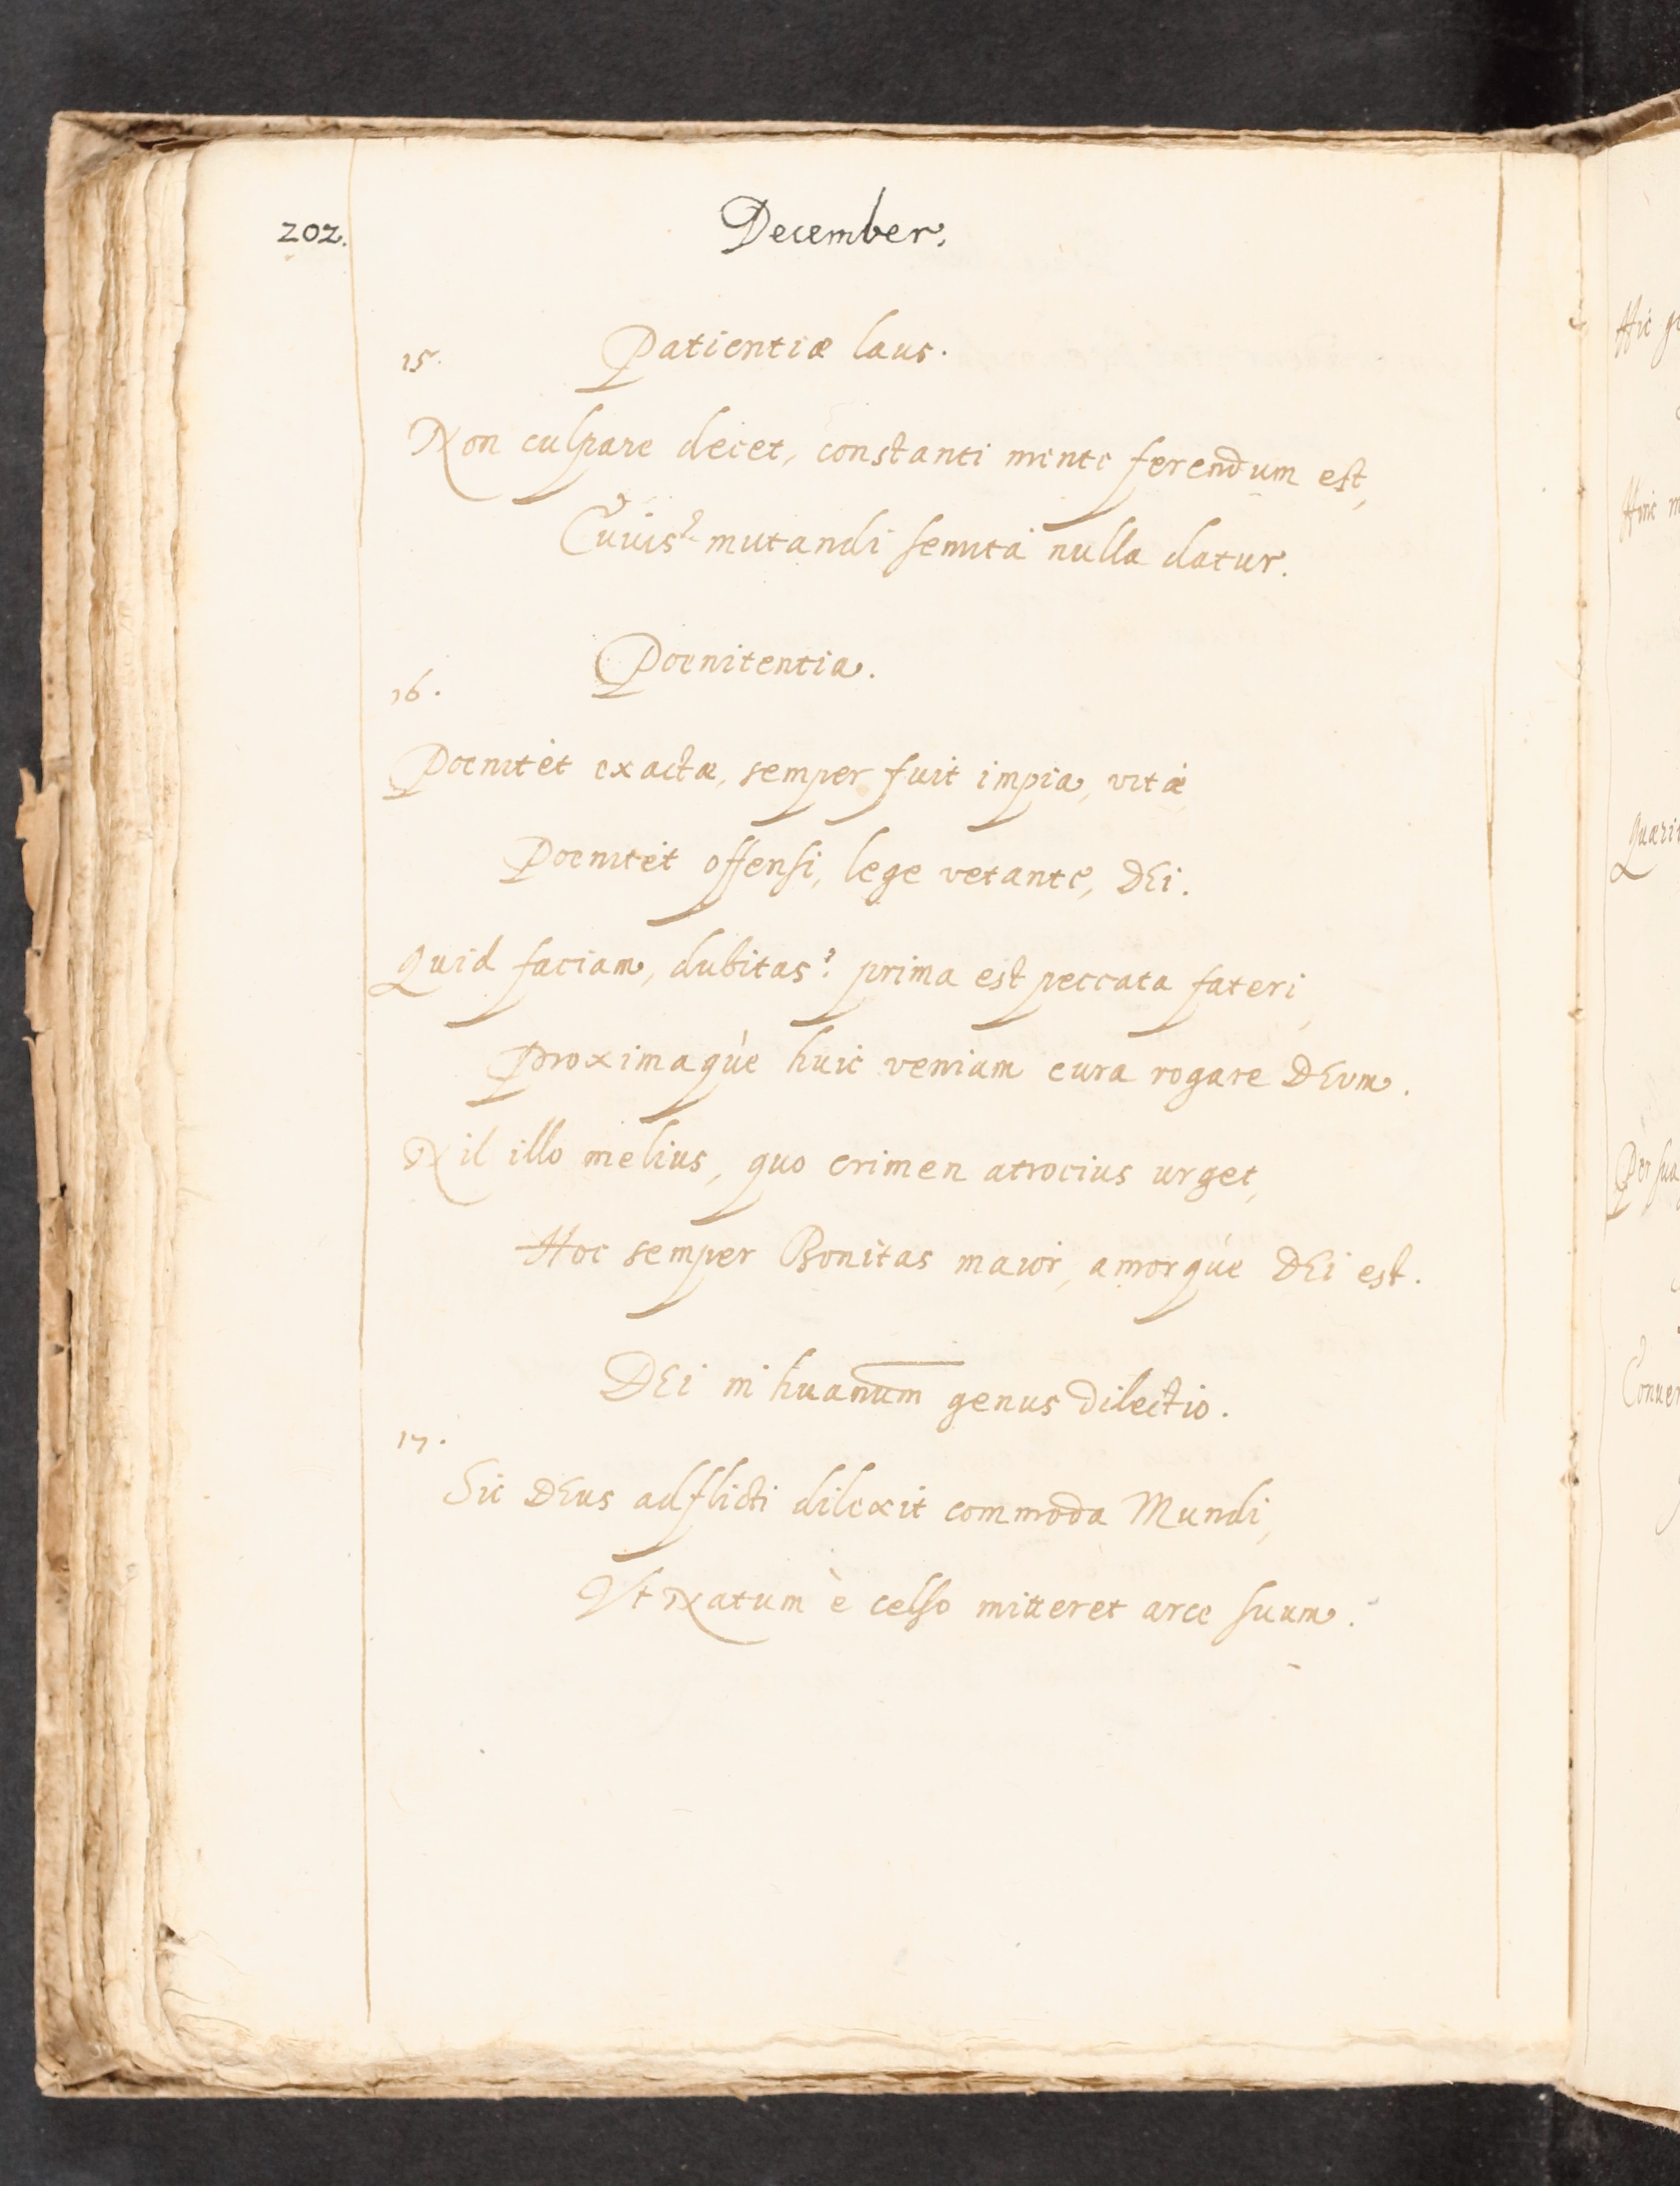 202.
December.
15.
Patientiæ laus.
Non culpare decet, constanti mente ferendum est,
mutandi semita nulla datur.
Poenitentia.
16.
Poenitet exactæ, semper fuit impia, vitæ
Poenitet offensi, lege vetante, DEi.
Quid faciam, dubitas? prima est peccata fateri,
Proximaque huic veniam cura rogare DEum.
Nil illo melius, quo crimen atrocius urget,
Hoc semper Bonitas maior, amorque DEi est.
DEi in huanum genus dilectio.
17.
Sic DEus adflicti dilexit commoda Mundi,
Vt Natum è celso mitteret arce suum.
Hic
Quærit